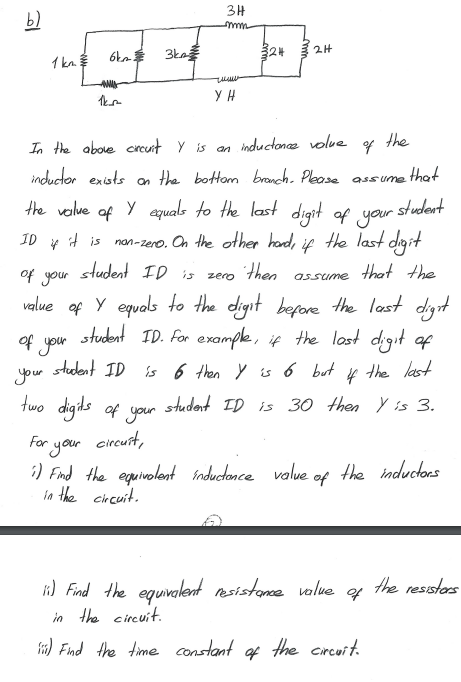 b)
3H
1kΩ
6kΩ
3kΩ
2H
2H
1kΩ
Y H
In the above circuit Y is an inductance volue of the
inductor exists on the bottom branch. Please assume that
the value of Y equals to the last digit of your student
ID if it is non-zero. On the other hand, if the last digit
of your student ID is zero then assume that the
value of Y equals to the digit before the last digit
of your student ID. For example, if the last digit of
your student ID is 6 then Y is 6 but if the last
two digits of your student ID is 30 then Y is 3.
For your circuit,
i) Find the equivalent inductance value of the inductors
in the circuit.
ii) Find the equivalent resistance value of the resistors
in the circuit.
iii) Find the time constant of the circuit.